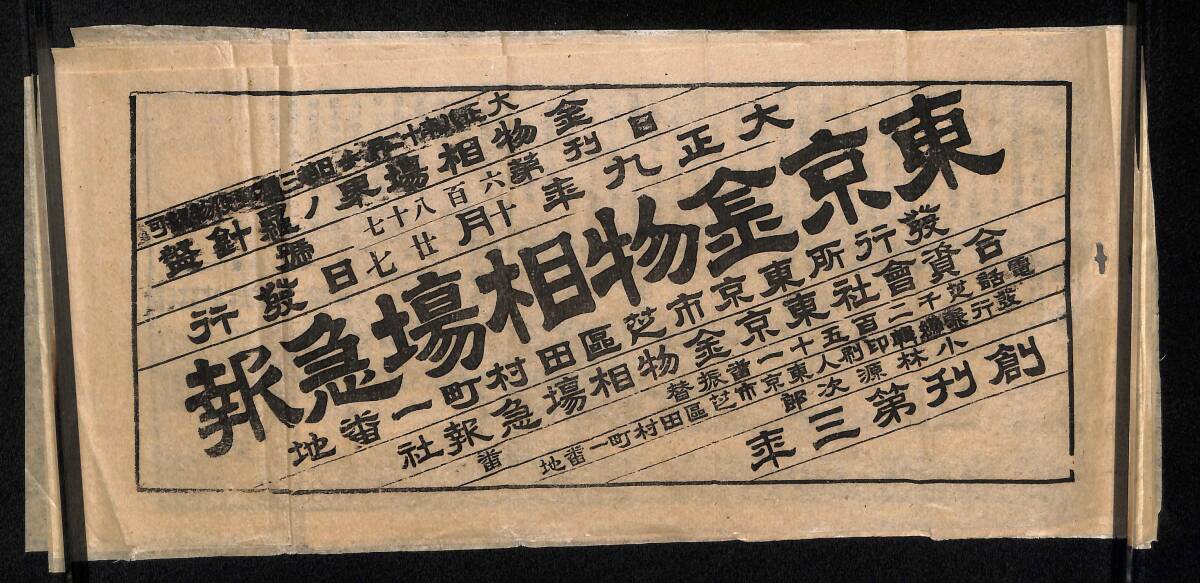 大正 第三種郵便物認可
金物相塲界ノ羅針盤
日刊第六百八十七號
大正九年十月廿七日發行
東京金物相塲急報
發行所東京市芝區田村町一番地
合資會社東京金物相塲急報社
電話芝千二百五十一番振替 番
發行兼編輯印刷人東京市芝區田村町一番地
小林源次郎
創刊第三年